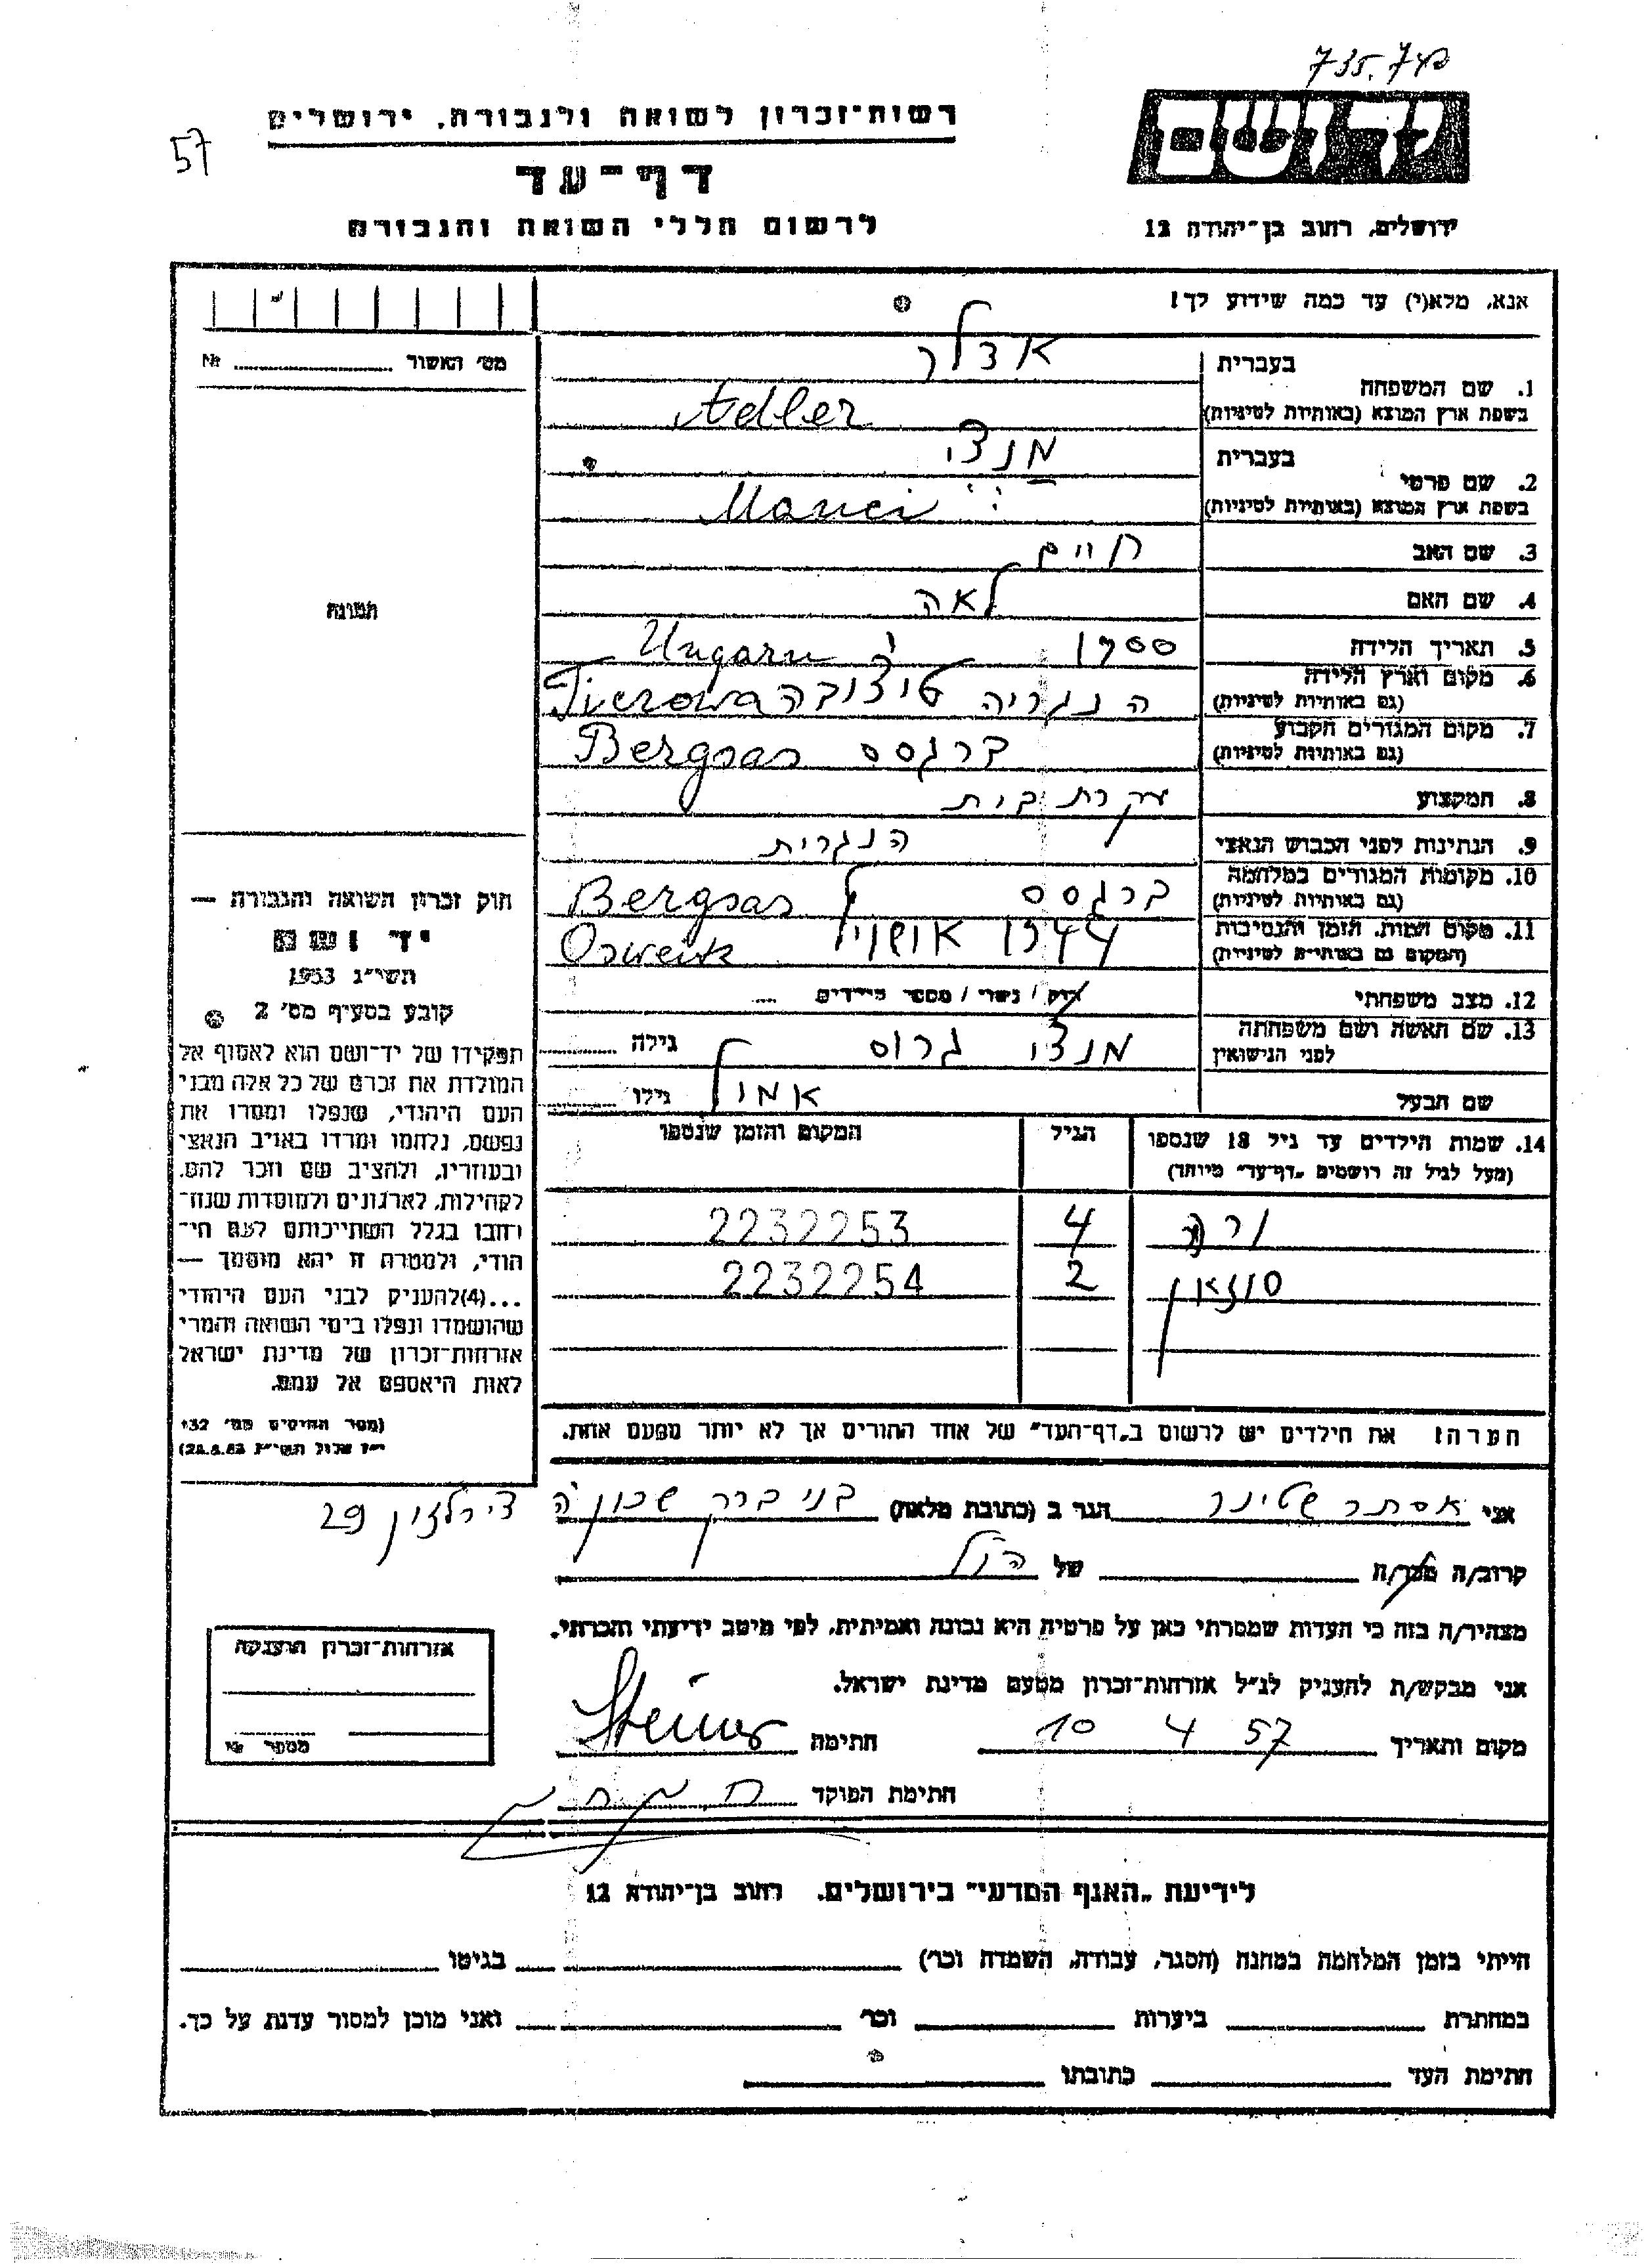 735.740
רשות־זכרון לשואה ולגבורה, ירושלים
57
דף־עד
יד ושם
לרשום חללי השואה והגבורה
ירושלים, רחוב בן־יהודה 12
אנא, מלא(י) עד כמה שידוע לך!
מס׳ האשור № ..........
1. שם המשפחה
בעברית אדלר
בשפת ארץ המוצא (באותיות לטיניות) Adler
2. שם פרטי
בעברית מנצי
בשפת ארץ המוצא (באותיות לטיניות) Manci
3. שם האב חיים
4. שם האם לאה
תמונה
5. תאריך הלידה 1900
6. מקום וארץ הלידה (גם באותיות לטיניות) Ungarn
הנגריה
7. מקום המגורים הקבוע (גם באותיות לטיניות) ברגסס Bergsas
8. המקצוע עקרת בית
9. הנתינות לפני הכבוש הנאצי הנגרית
10. מקומות המגורים במלחמה (גם באותיות לטיניות) ברגסס Bergsas
11. מקום המות, הזמן והנסיבות (המקום גם באותיות לטיניות) 1944
12. מצב משפחתי רוק / נשוי / מספר הילדים ....
13. שם האשה ושם משפחתה לפני הנישואין מנצי גרוס גילה ..........
שם הבעל אמיל גילו ..........
14. שמות הילדים עד גיל 18 שנספו
(מעל לגיל זה רושמים „דף־עד״ מיוחד)
הגיל
המקום והזמן שנספו
ורה 4 2232253
סוזאן 2 2232254
הערה: את הילדים יש לרשום ב„דף־העד״ של אחד ההורים אך לא יותר מפעם אחת.
חוק זכרון השואה והגבורה —
יד ושם
תשי״ג 1953
קובע בסעיף מס׳ 2
תפקידו של יד־ושם הוא לאסוף אל
המולדת את זכרם של כל אלה מבני
העם היהודי, שנפלו ומסרו את
נפשם, נלחמו ומרדו באויב הנאצי
ובעוזריו, ולהציב שם וזכר להם,
לקהילות, לארגונים ולמוסדות שנח־
רחבו בגלל השתייכותם לעם הי־
הודי, ולמטרה זו יהא מוסמך —
...(4)להעניק לבני העם היהודי
שהושמדו ונפלו בימי השואה והמרי
אזרחות־זכרון של מדינת ישראל
לאות היאספם אל עמם.
(ספר החוקים מס׳ 132
י״ז אלול תשי״ג 28.8.53)
אני אסתר שטינר הגר ב (כתובת מלאה) בני ברק שכון ה 29
קרוב/ה מכר/ה של הנ״ל
מצהיר/ה בזה כי העדות שמסרתי כאן על פרטיה היא נכונה ואמיתית, לפי מיטב ידיעתי והכרתי.
אני מבקש/ת להעניק לנ״ל אזרחות־זכרון מטעם מדינת ישראל.
מקום ותאריך 10 4 57 חתימה Steiner
חתימת הפוקד
אזרחות־זכרון הוענקה
מספר №
לידיעת „האגף המדעי״ בירושלים, רחוב בן־יהודה 12
הייתי בזמן המלחמה במחנה (הסגר, עבודה, השמדה וכו׳) בגיטו
במחתרת ביערות וכו׳ ואני מוכן למסור עדות על כך.
חתימת העד כתובתו